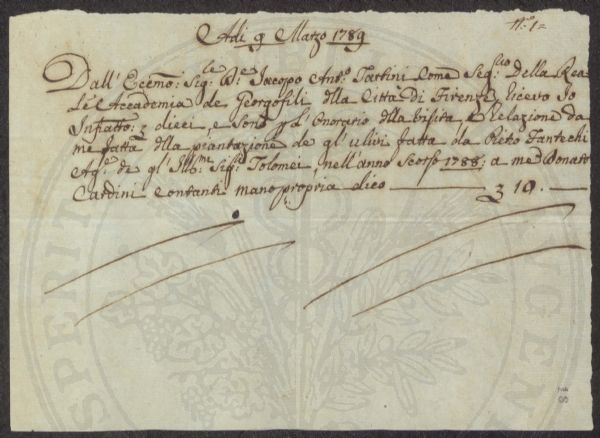 N.º 1=
Adì 9 Marzo 1789
Dall' Eccmo: Sig.le D.e Jacopo Ant.o Tartini Come Seg.rio Della Rea=
le Accademia de Georgofili della Città Di Firenze ricevo Io
Infratto: dieci, e sono p d' Onorario della Visita, e Relazione da
me fatta della piantazione de gl' ulivi fatta da Pietro Fantechi
Ag.e de gl' Ill.mi Sig.ri Tolomei, nell' anno Scorso 1788: a me Donato
Cardini contanti mano propria dico ——— 10. —
SPERITATI